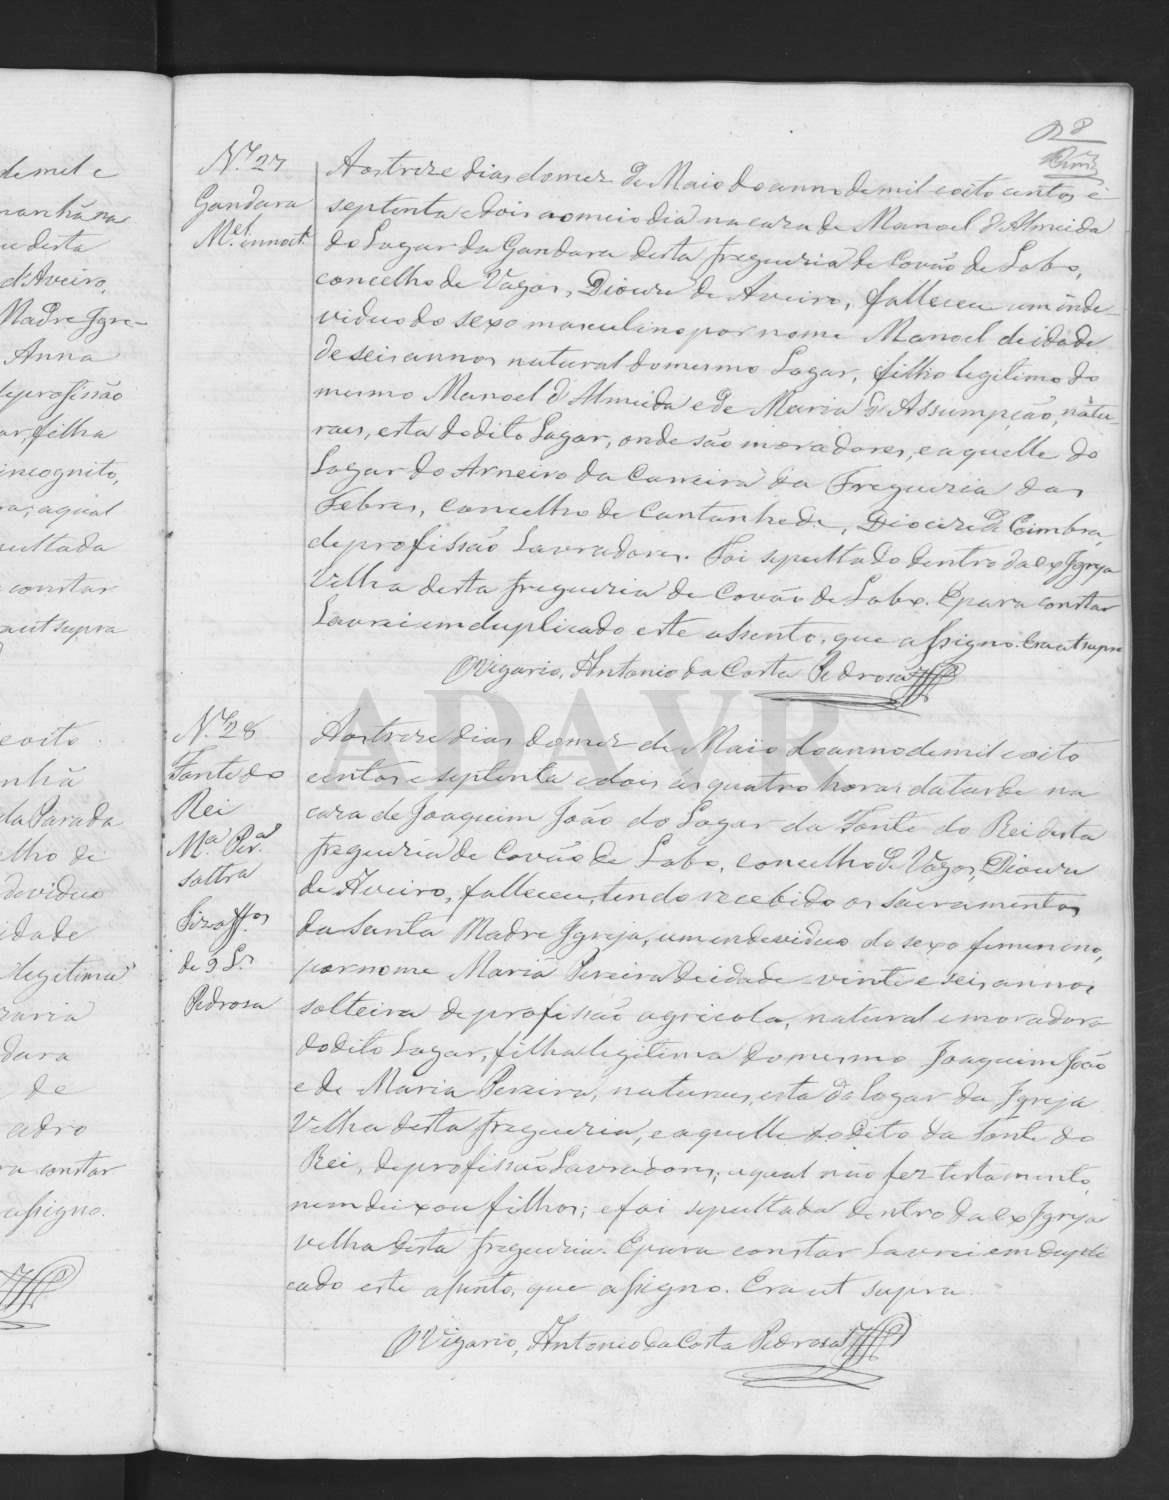 8
N.º 27
Gandara
M.el innoct.
Aos treze dias do mez de Maio do anno de mil e oito centos e
septenta e dois ao meio dia na caza de Manoel d'Almeida
do Lugar da Gandara desta freguezia de Covão de Lobo,
concelho de Vagos, Diocese de Aveiro, falleceu um inde-
viduo do sexo masculino por nome Manoel de idade
de seis annos natural do mesmo Lugar, filho legitimo do
mesmo Manoel d'Almeida e de Maria d'Assumpção, natu-
raes, esta do dito Lugar, onde são moradores, e aquelle do
Lugar do Arneiro da Carreira da Freguezia das
Febres, concelho de Cantanhede, Diocese de Coimbra,
de profissão Lavradores. Foi sepultado dentro da ex Igreja
Velha desta freguezia de Covão de Lobo. E para constar
Lavrei em duplicado este assento, que assigno. Era ut supra
O Vigario, Antonio da Costa Pedrosa
N.º 28
Fonte do
Rei
M.ª Per.ª
soltra
Fiz off.os
de 9 L.s
Pedrosa
Aos treze dias do mez de Maio do anno de mil e oito
centos e septenta e dois ás quatro horas da tarde na
caza de Joaquim João do Lugar da Fonte do Rei desta
freguezia de Covão de Lobo, concelho de Vagos, Diocese
de Aveiro, falleceu, tendo recebido os sacramentos
da Santa Madre Igreja, um endeviduo do sexo femenino,
por nome Maria Pereira de idade vinte e seis annos
solteira de profissão agricola, natural e moradora
do dito Lugar, filha legitima do mesmo Joaquim João
e de Maria Pereira, naturaes, esta do lugar da Igreja
Velha desta freguezia, e aquelle do dito da Fonte do
Rei, de profissão Lavradores; a qual não fez testamento,
nem deixou filhos; e foi sepultada dentro da ex Igreja
velha desta freguezia. E para constar Lavrei em dupli
cado este assento, que assigno. Era ut supra.
O Vigario, Antonio da Costa Pedrosa
de mil e
manhã na
e desta
d'Aveiro,
Madre Igre-
Anna
de profissão
ar, filha
incognito,
a; a qual
sepultada
constar
a ut supra
e oito
nhã
da Parada
elho de
deviduo
idade
legitima
zaria
dara
de
adro
ra constar
assigno.
ADAVR